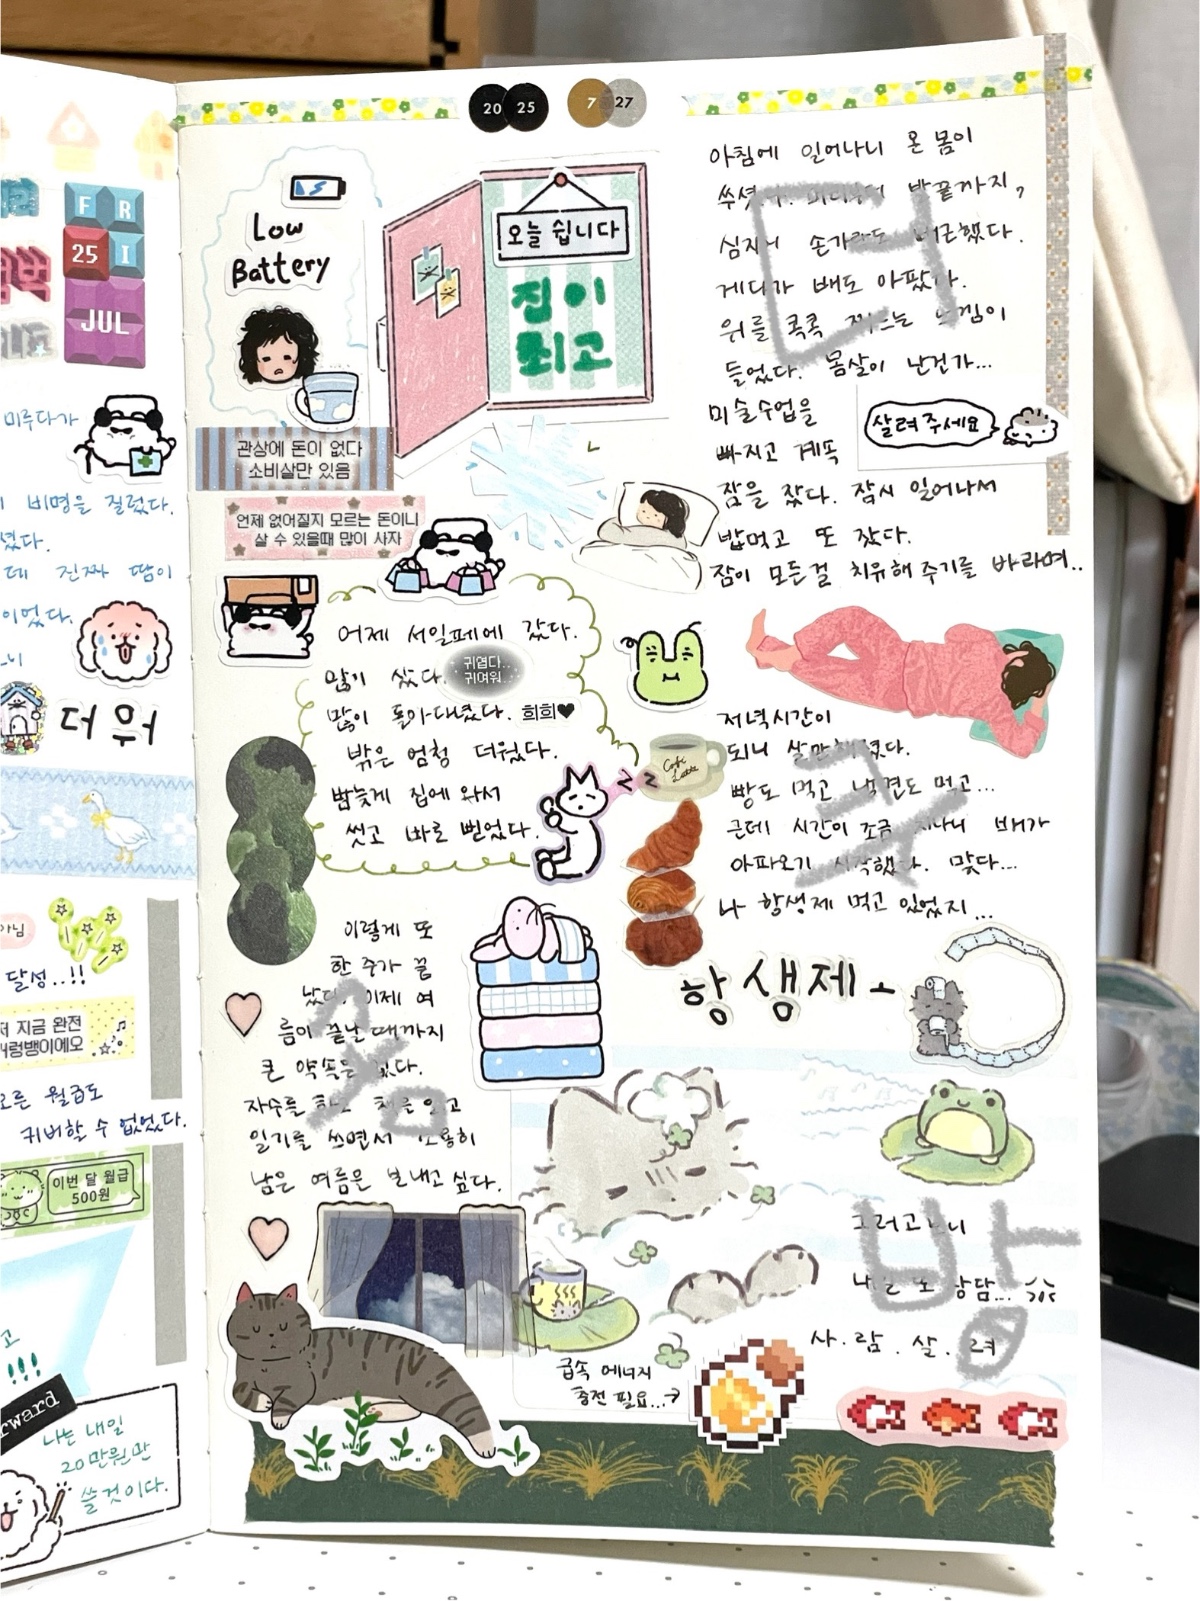 20 25 7 27
FR
25 I
JUL
미루다가
비명을 질렀다.
데 진짜 땀이
이었다.
더워
달성..!!
지금 완전
오른 월급도
커버할 수 없었다.
이번 달 월급
500원
!!!
나는 내일
20만원만
쓸 것이다.
Low
Battery
오늘 쉽니다
집이
최고
관상에 돈이 없다
소비살만 있음
언제 없어질지 모르는 돈이니
살 수 있을때 많이 사자
어제 서일페에 갔다.
많이 샀다. 귀엽다..
귀여워..
많이 돌아다녔다. 희희♥
밖은 엄청 더웠다.
밤늦게 집에 와서
씻고 바로 뻗었다.
z z
이렇게 또
한 주가 끝
났다. 이제 여
름이 끝날 때까지
큰 약속은 없다.
자수를 하고 책을 읽고
일기를 쓰면서 조용히
남은 여름은 보내고 싶다.
아침에 일어나니 온 몸이
발끝까지,
심지어 손가락도 뻐근했다.
게다가 배도 아팠다.
위를 콕콕 느낌이
들었다. 몸살이 난건가...
미술수업을
빠지고 계속
살려주세요
잠을 잤다. 잠시 일어나서
밥먹고 또 잤다.
잠이 모든걸 치유해주기를 바라며..
저녁시간이
되니 살만해졌다.
Cafe
Latte
빵도 먹고 냉면도 먹고...
근데 시간이 조금 지나니 배가
아파오기 시작했다. 맞다...
나 항생제 먹고 있었지...
항생제
그러고보니
내일 또 상담...
사.람.살.려
급속 에너지
충전 필요...
더
쿠
숨
방